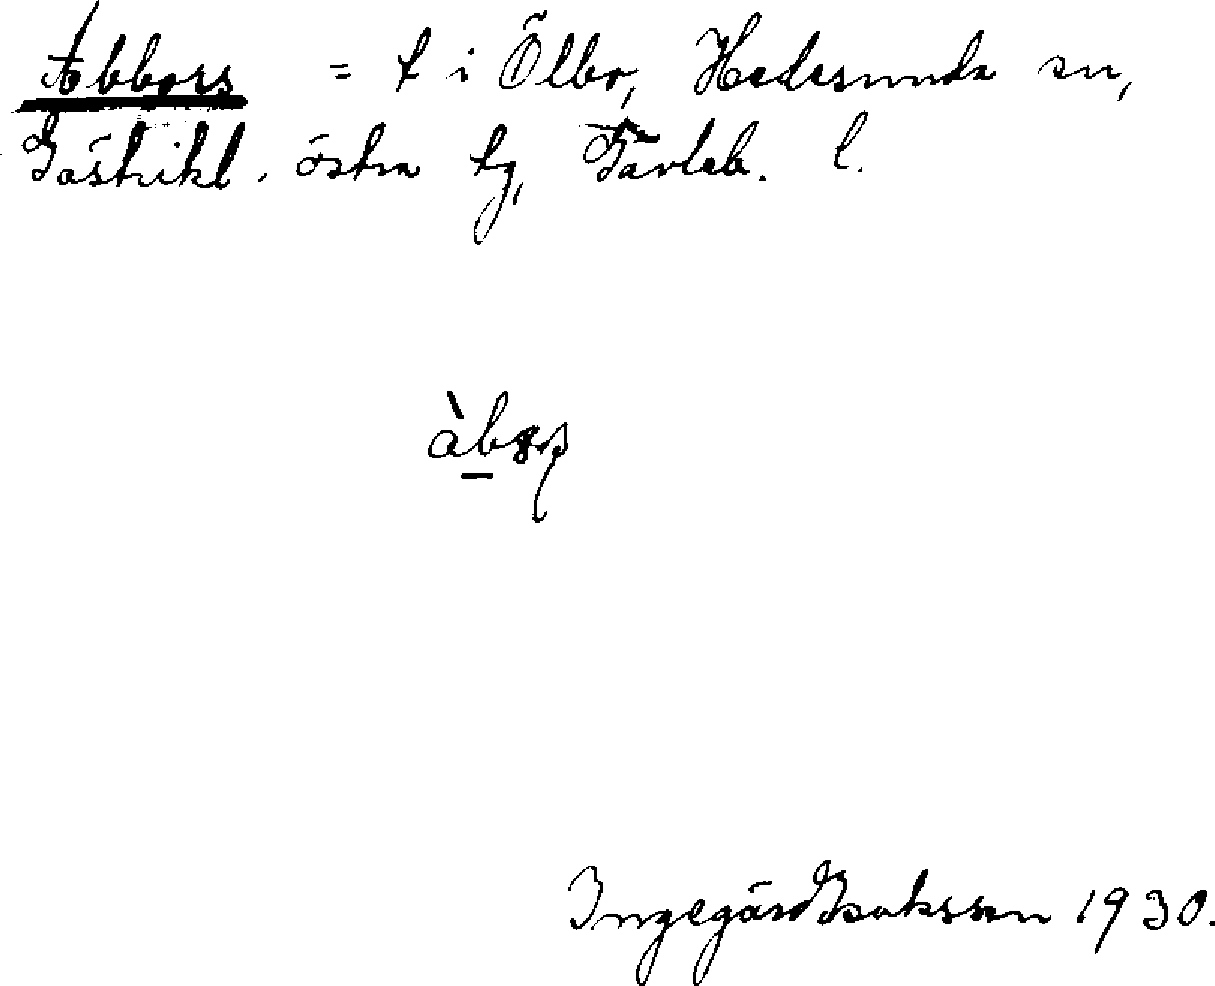 Abbors = t i Ölbo, Hedesunda sn,
Gästrikl. östra tg, Gävleb. l.
Ingegärd Isaksson 1930.